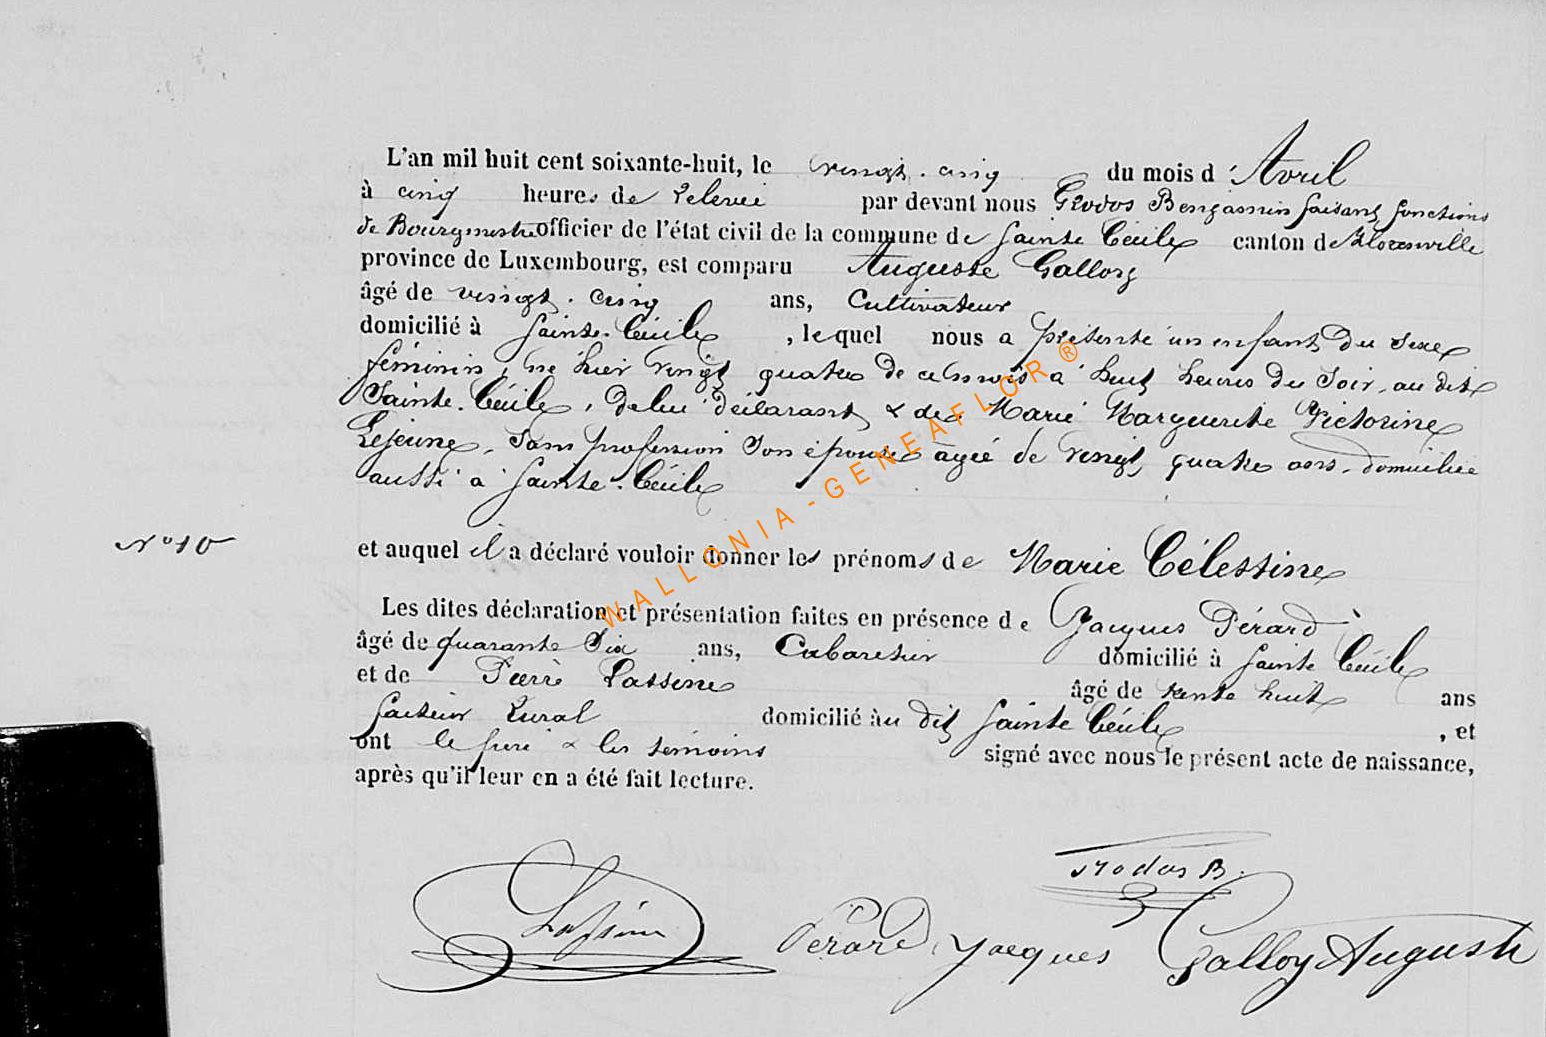 L'an mil huit cent soixante-huit, le vingt-cinq du mois d'Avril
à cinq heures de relevée par devant nous Grodos Benjamin faisant fonctions
de Bourgmestre officier de l'état civil de la commune de Sainte Cécile canton de Florenville
province de Luxembourg, est comparu Auguste Galloy
âgé de vingt-cinq ans, Cultivateur
domicilié à Sainte-Cécile, lequel nous a présenté un enfant du sexe
féminin, né hier vingt quatre de ce mois à huit heures du soir, au dit
Sainte-Cécile, de lui déclarant & de Marie Marguerite Victorine
Lejeune, sans profession son épouse âgée de vingt quatre ans, domiciliée
aussi à Sainte-Cécile
N° 10
et auquel il a déclaré vouloir donner les prénoms de Marie Célestine
Les dites déclaration et présentation faites en présence de Jacques Pérard
âgé de quarante six ans, Cabaretier domicilié à Sainte Cécile
et de Pierre Lassine âgé de trente huit ans
facteur rural domicilié au dit Sainte Cécile, et
ont le père & les témoins signé avec nous le présent acte de naissance,
après qu'il leur en a été fait lecture.
WALLONIA - GENEAFLOR ®
Grodos B.
Lassine Pérard Jacques Galloy Auguste